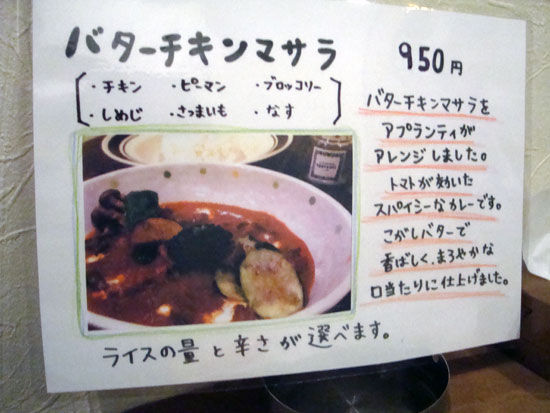 バターチキンマサラ 950円
・チキン ・ピーマン ・ブロッコリー
・しめじ ・さつまいも ・なす
バターチキンマサラを
アプランティが
アレンジしました。
トマトが効いた
スパイシーなカレーです。
こがしバターで
香ばしく、まろやかな
口当たりに仕上げました。
ライスの量と辛さが選べます。